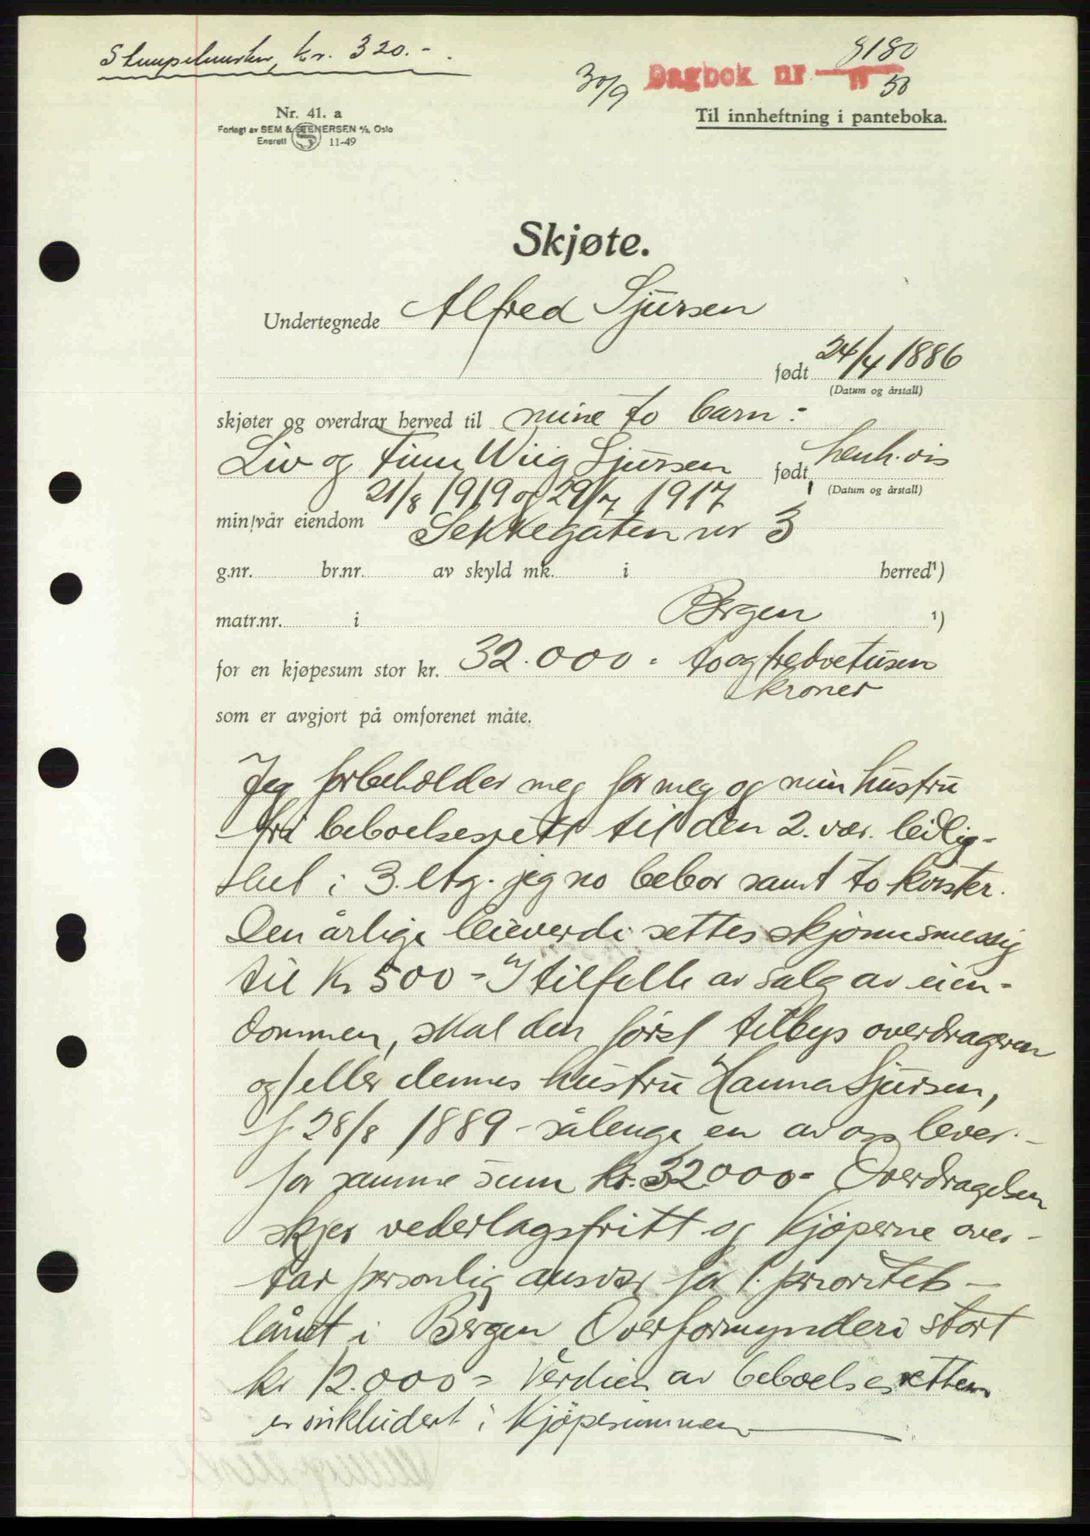 Stempelmerker, kr. 320.-
30/9 Dagbok nr 8180
50
Til innheftning i panteboka.
Nr. 41. a
Forlagt av SEM & STENERSEN A/S, Oslo
Enerett 11-49
Skjøte.
Undertegnede Alfred Sjursen
født 24/4 1886
(Datum og årstall)
skjøter og overdrar herved til mine to barn:
Liv og Finn Wiig Sjursen født henh.vis
21/8 1919 og 29/7 1917 (Datum og årstall)
min/vår eiendom Sekkegaten nr 3
g.nr. br.nr. av skyld mk. i herred¹)
matr.nr. i Bergen ¹)
for en kjøpesum stor kr. 32.000.- toogtredvetusen
kroner
som er avgjort på omforenet måte.
Jeg forbeholder meg for meg og min hustru
fri beboelsesrett til den 2. vær. leilig-
het i 3. etg. jeg no bebor samt to kvister.
Den årlige leieverdi settes skjønnsmessig
til Kr 500 = I tilfelle av salg av eien-
dommen, skal den først tilbys overdrageren
og/eller dennes hustru Hanna Sjursen,
f 28/8 1889 - sålenge en av oss lever.-
for samme sum kr. 32000= Overdragelsen
skjer vederlagsfritt og Kjøperne over-
tar personlig ansvar for 1. prioritets-
lånet i Bergen Overformynderi stort
kr 12.000= Verdien av beboelsesretten
er inkludert i Kjøpesummen